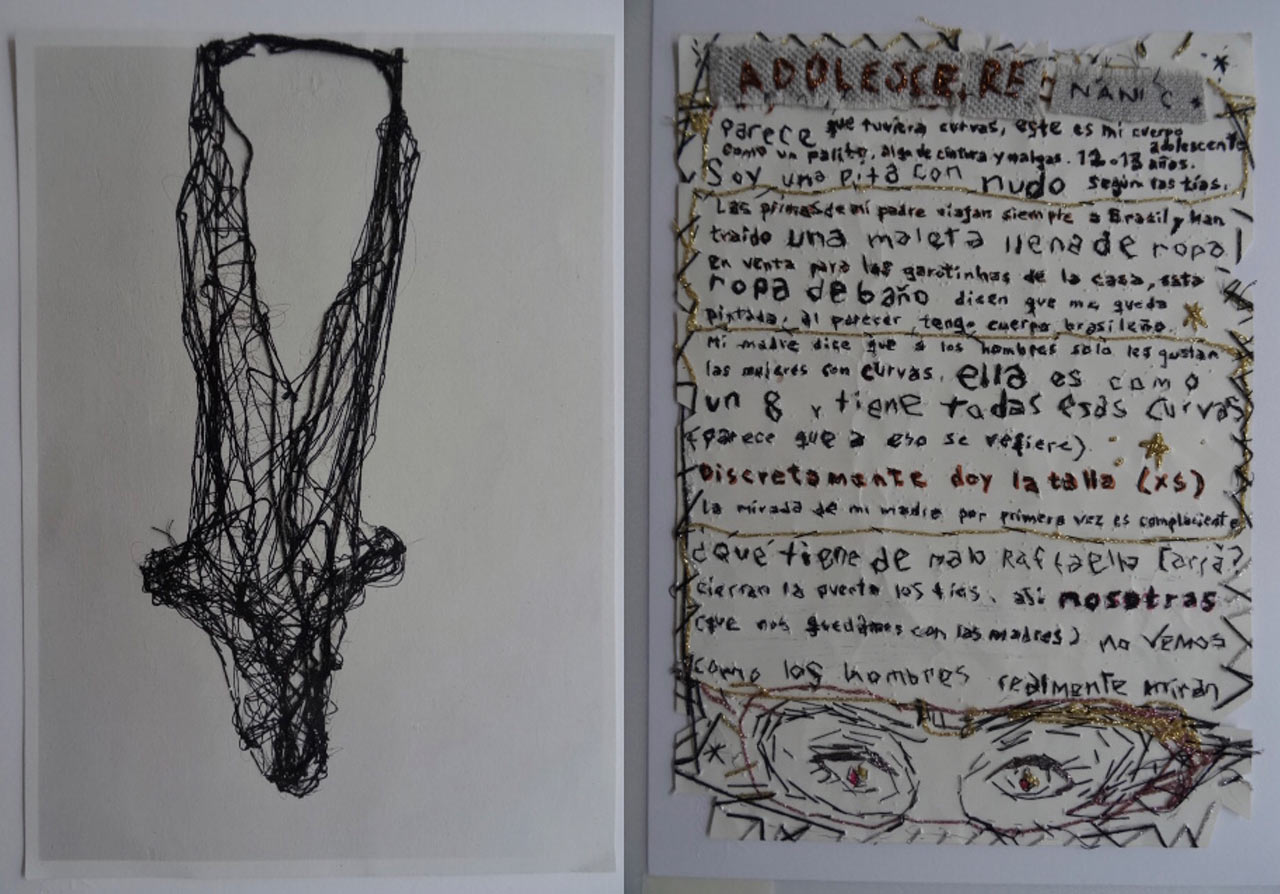 ADOLESCERE
NANI C.
Parece que tuviera curvas, este es mi cuerpo adolescente
como un palito, algo de cintura y nalgas. 12 o 13 años.
Soy una pita con nudo según las tías.
Las primas de mi padre viajan siempre a Brasil y han
traido una maleta llena de ropa
en venta para las garotinhas de la casa, esta
ropa de baño dicen que me queda
pintada, al parecer, tengo cuerpo brasileño.
Mi madre dice que a los hombres solo les gustan
las mujeres con curvas, ella es como
un 8 y tiene todas esas curvas
(parece que a eso se refiere).
Discretamente doy la talla (xs)
la mirada de mi madre por primera vez es complaciente
¿Qué tiene de malo Raffaella Carrà?
cierran la puerta los tíos, asi nosotras
(que nos quedamos con las madres) no vemos
como los hombres realmente miran